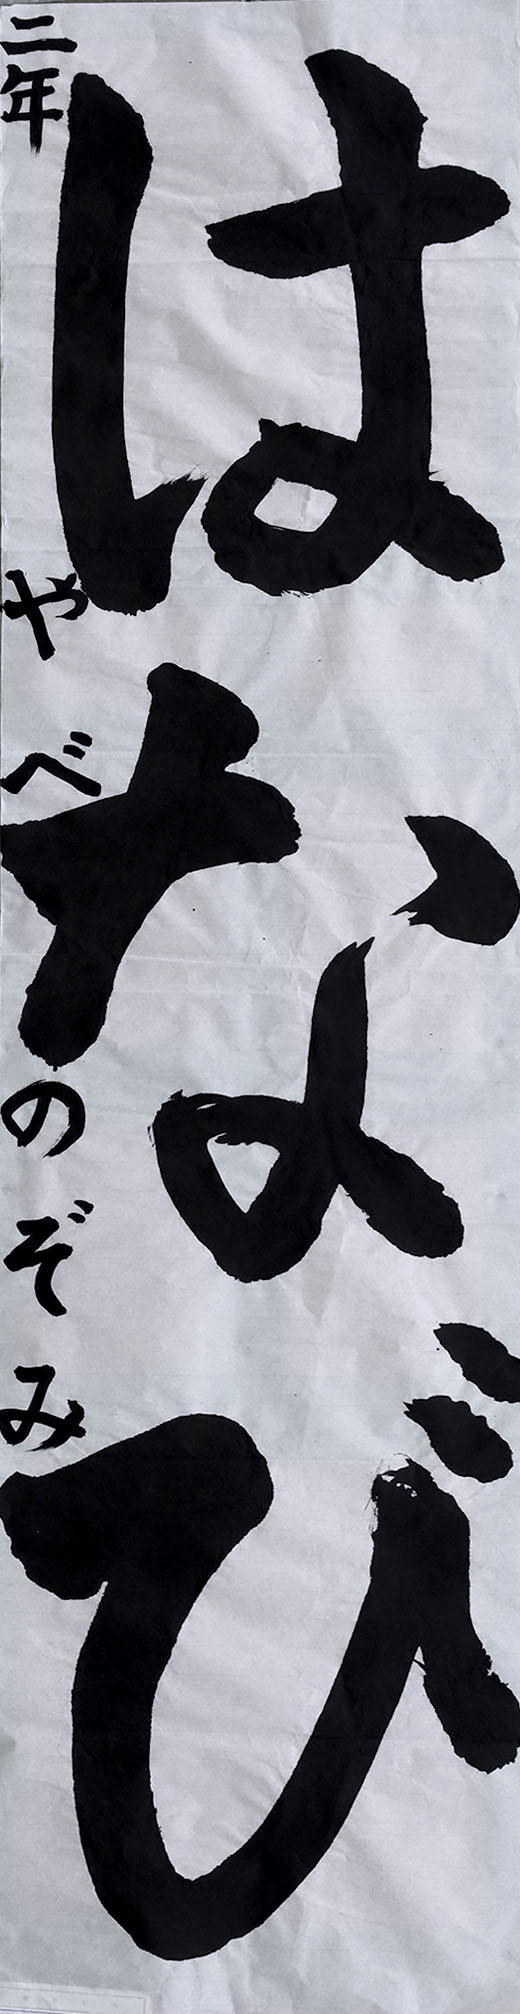 はなび
二年 やべのぞみ